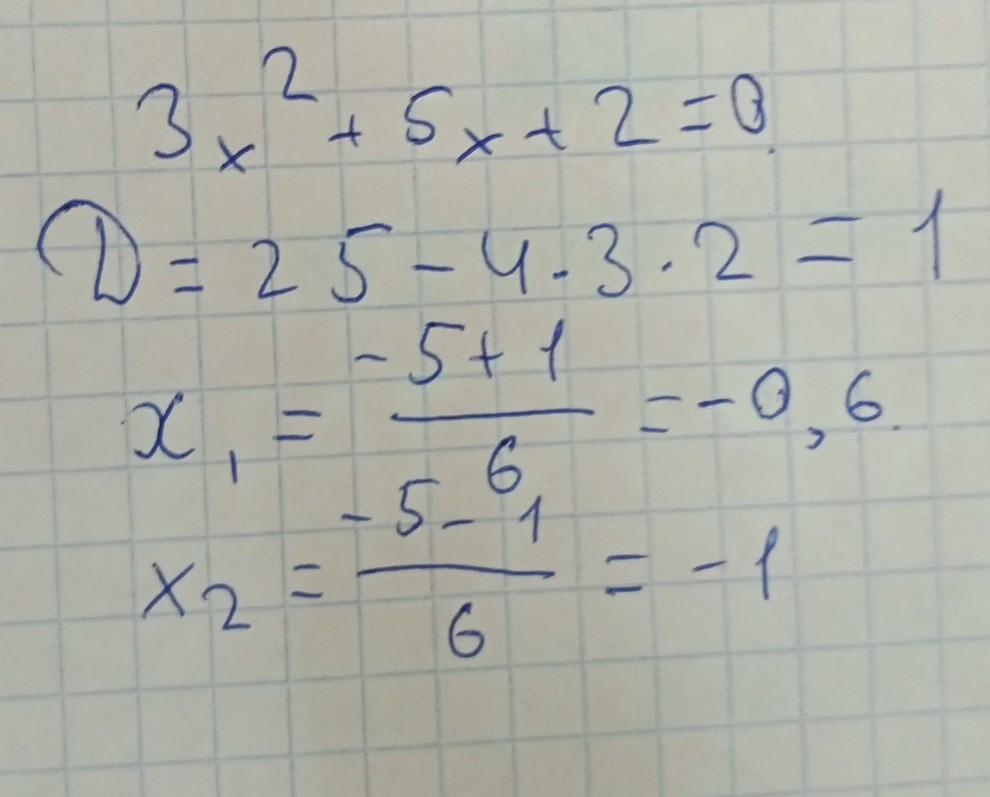 3x² + 5x + 2 = 0.
D = 25 - 4 · 3 · 2 = 1
x₁ = (-5 + 1)/6 = -0,6.
x₂ = (-5 - 1)/6 = -1